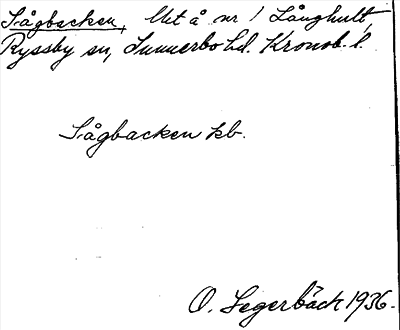 Sågbacken, Ut å nr 1 Långhult,
Ryssby sn, Sunnerbo hd. Kronob. l.
Sågbacken kb.
O. Segerbäck 1936.